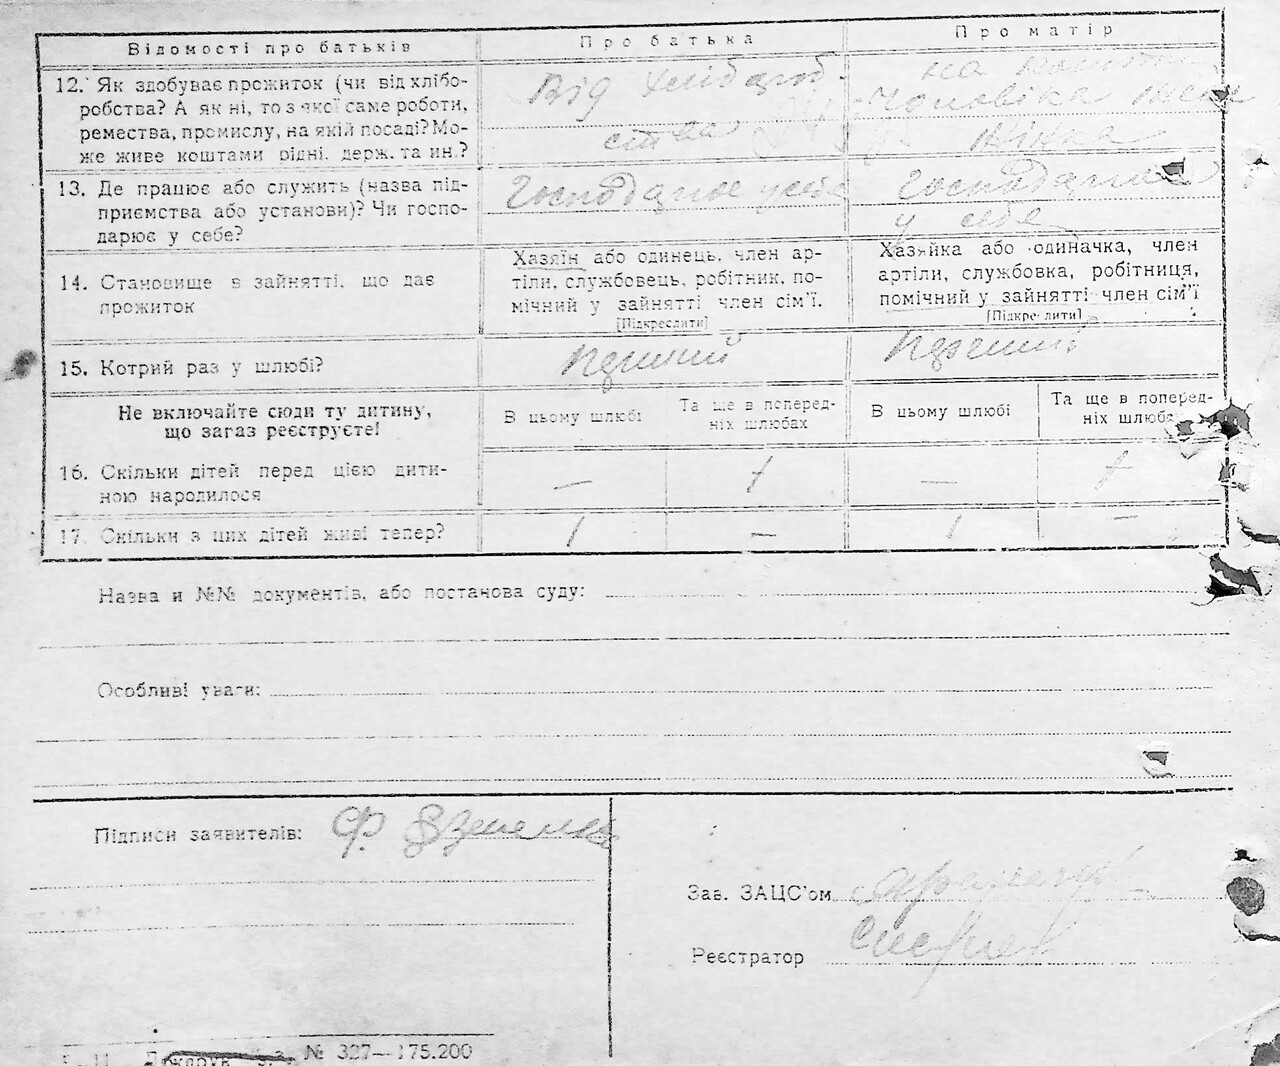 Відомості про батьків
Про батька
Про матір
12. Як здобуває прожиток (чи від хлібо-
робства? А як ні, то з якої саме роботи,
ремества, промислу, на якій посаді? Мо-
же живе коштами рідні, держ. та ин.?
Від хлібороб-
ства
на
чоловіка
жінка
13. Де працює або служить (назва під-
приємства або установи)? Чи госпо-
дарює у себе?
Господарює у себе
Господарює
у себе
14. Становище в зайнятті, що дає
прожиток
Хазяїн або одинець, член ар-
тіли, службовець, робітник, по-
мічний у зайнятті член сім'ї.
[Підкреслити]
Хазяйка або одиначка, член
артіли, службовка, робітниця,
помічний у зайнятті член сім'ї
[Підкреслити]
15. Котрий раз у шлюбі?
Перший
Перший
Не включайте сюди ту дитину,
що загаз реєструєте!
В цьому шлюбі
Та ще в поперед-
ніх шлюбах
В цьому шлюбі
Та ще в поперед-
ніх шлюбах
16. Скільки дітей перед цією дити-
ною народилося
— 1 — 1
17. Скільки з цих дітей живі тепер?
1 — 1 —
Назва и №№ документів, або постанова суду:
Особливі уваги:
Підписи заявителів: Ф.
Зав. ЗАЦС'ом
Реєстратор
№ 327—175.200